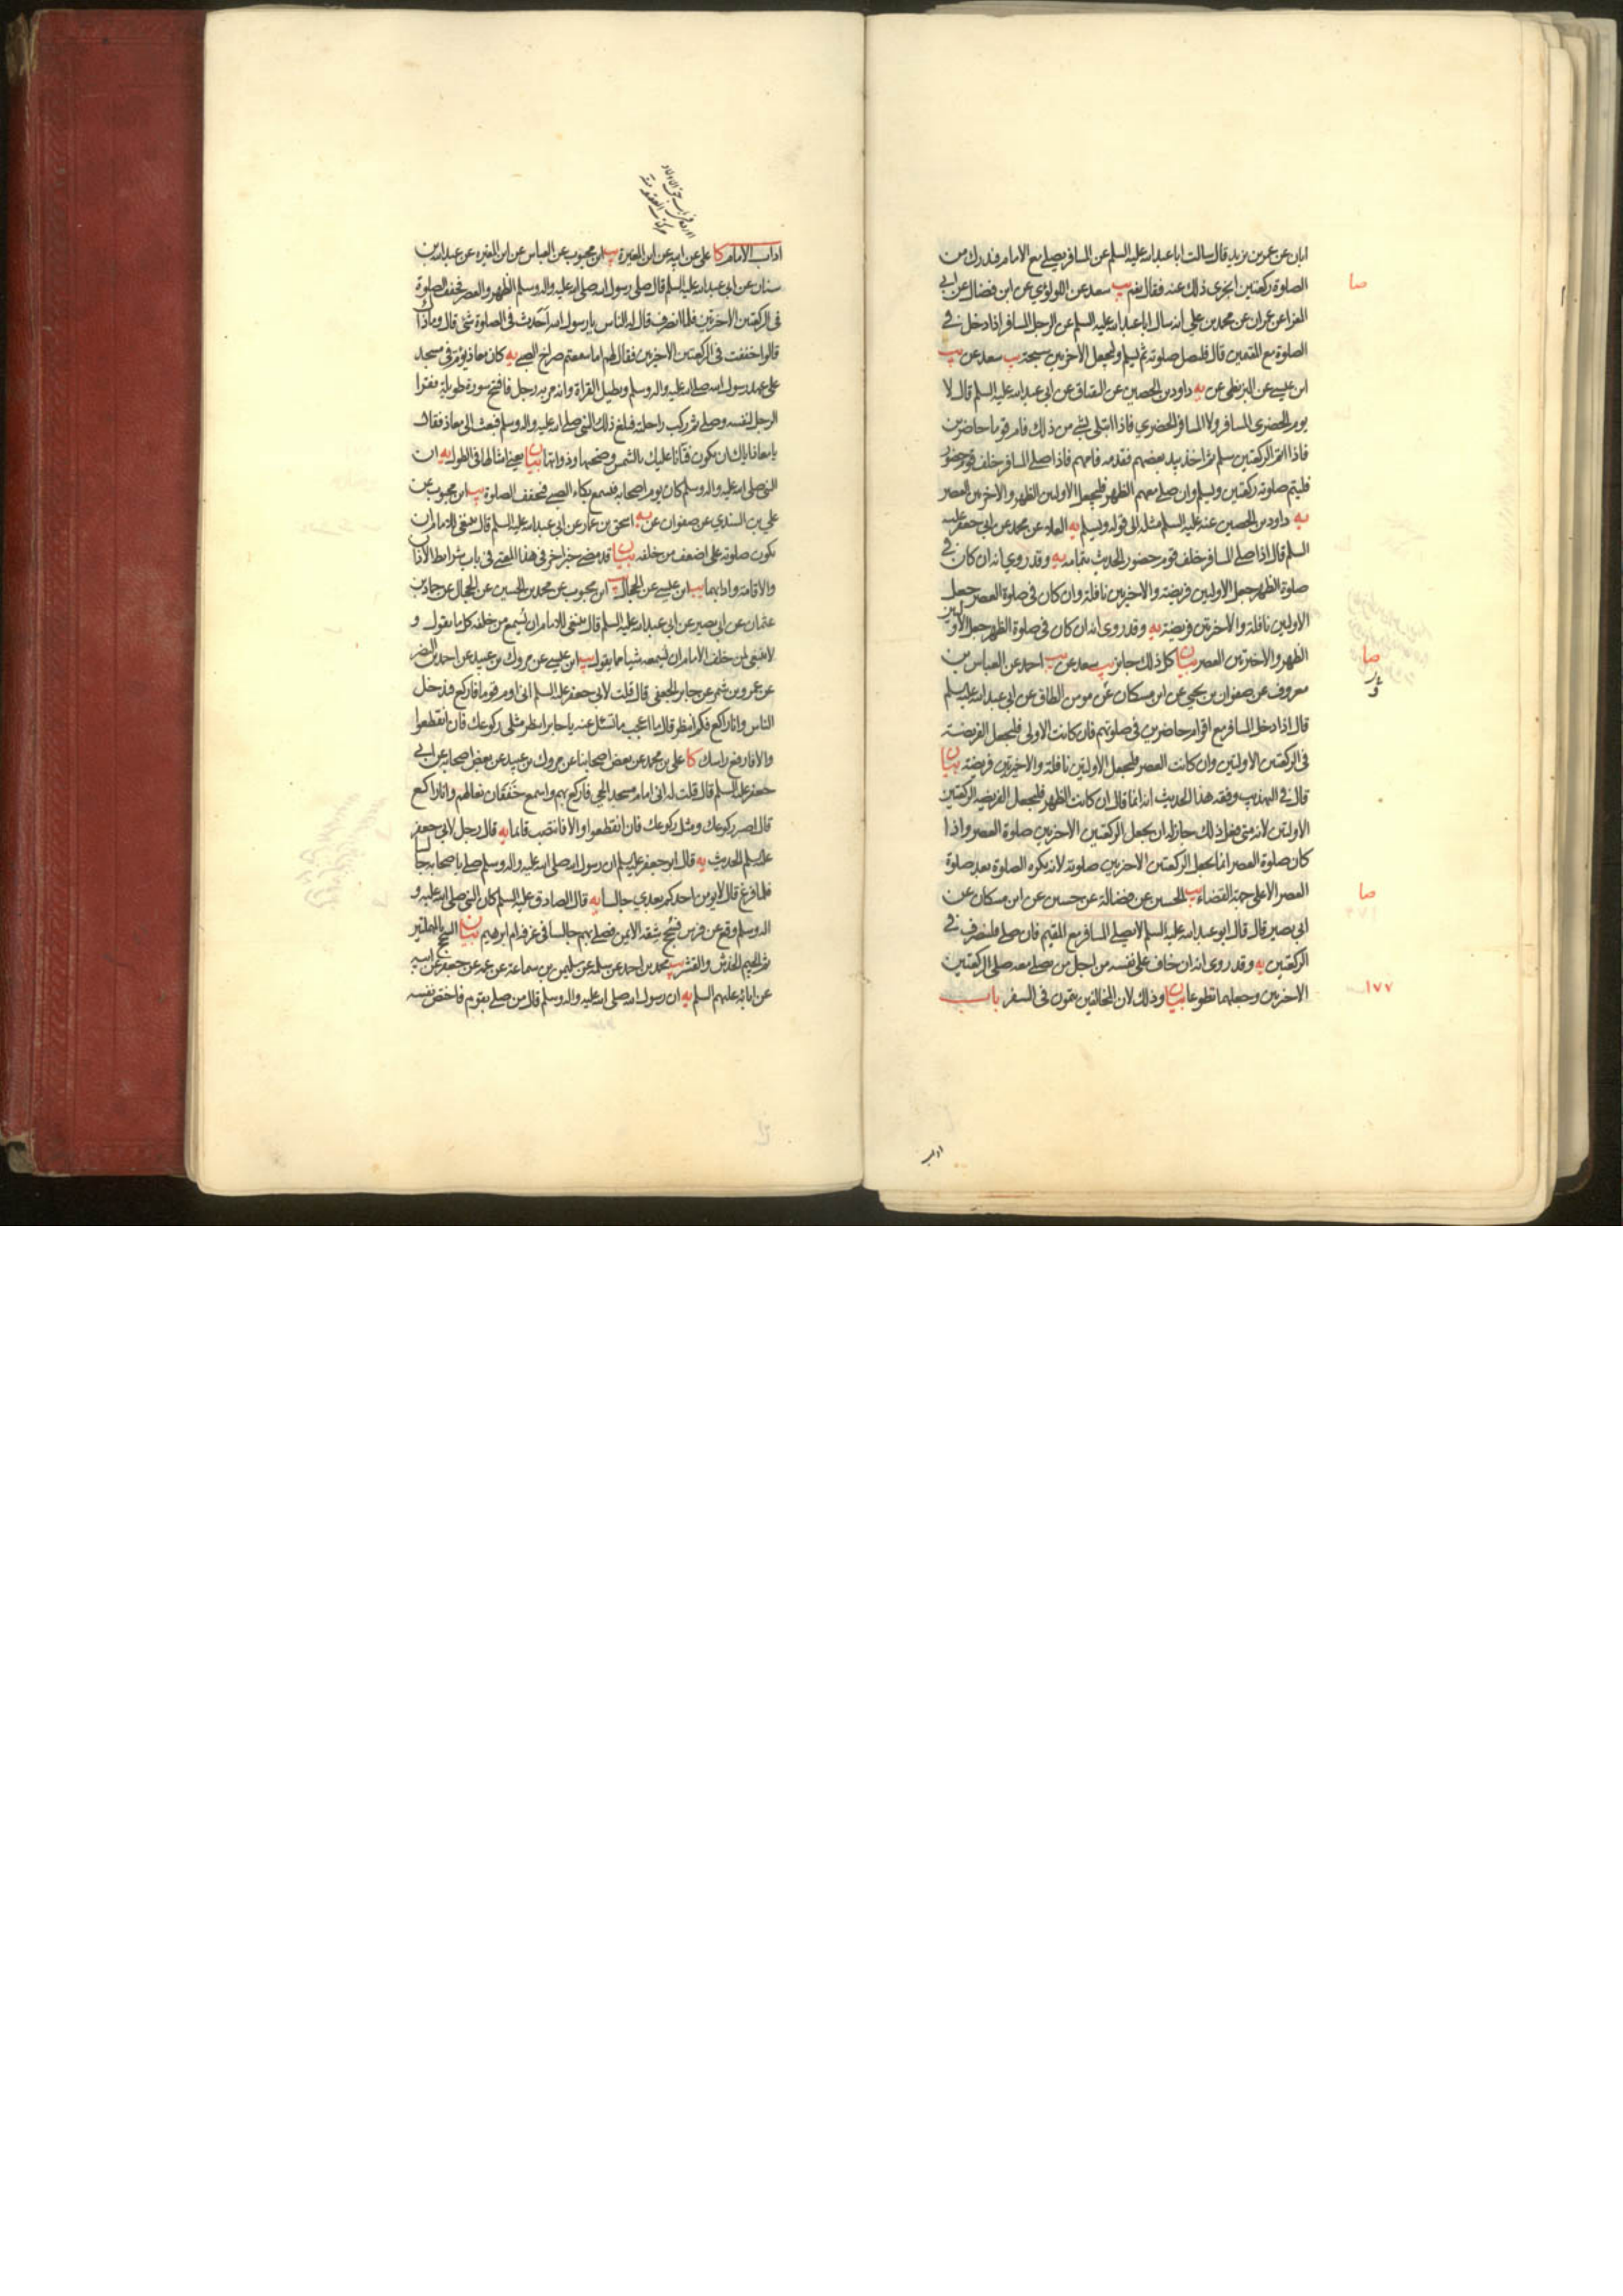 ابان عن عمر بن يزيد قال سالت ابا عبد الله عليه السلم عن المسافر يصلي مع الامام فيدرك من
الصلوة ركعتين ايجزي ذلك عنه فقال نعم يب سعد عن اللولؤي عن ابن فضال عن ابي
المغرا عن عمران عن محمد بن علي انه سال ابا عبد الله عليه السلم عن الرجل المسافر اذا دخل في
الصلوة مع المقيمين قال فليصل صلوته ثم ليسلم وليجعل الاخريين سبحة يب سعد عن يب
ابن عيسى عن البزنطي عن يه داود بن الحصين عن البقباق عن ابي عبد الله عليه السلم قال لا
يوم الحضري المسافر ولا المسافر الحضري فاذا ابتلى بشي من ذلك فام قوما حاضرين
فاذا اتم الركعتين سلم ثم اخذ بيد بعضهم فقدمه فامهم فاذا صلى المسافر خلف قوم حضور
فليتم صلوته ركعتين ويسلم وان صلى معهم الظهر فليجعل الاوليين الظهر والاخريين العصر
يه داود بن الحصين عنه عليه السلم مثله الى قوله ويسلم يه العلاء عن محمد عن ابي جعفر عليه
السلم قال اذا صلى المسافر خلف قوم حضور الحديث بتمامه يه وقد روي انه ان كان في
صلوة الظهر جعل الاوليين فريضة والاخيرتين نافلة وان كان في صلوة العصر جعل
الاوليين نافلة والاخريين فريضة يه وقد روى انه ان كان في صلوة الظهر جعل الاوليين
الظهر والاخيرتين العصر بيان كل ذلك جايز يب سعد عن يب احمد عن العباس بن
معروف عن صفوان بن يحيى عن ابن مسكان عن مومن الطاق عن ابي عبد الله عليه السلم
قال اذا دخل المسافر مع اقوام حاضرين في صلوتهم فان كانت الاولى فليجعل الفريضة
في الركعتين الاولتين وان كانت العصر فليجعل الاولتين نافلة والاخيرتين فريضة بيان
قال في التهذيب وفقه هذا الحديث انه انما قال ان كانت الظهر فليجعل الفريضة الركعتين
الاولتين لانه متى فعل ذلك جاز له ان يجعل الركعتين الاخريين صلوة العصر واذا
كان صلوة العصر انما يجعل الركعتين الاخريين صلوته لانه يكره الصلوة بعد صلوة
العصر الا على جهة القضاء يب الحسين عن فضالة عن حسين عن ابن مسكان عن
ابي بصير قال قال ابو عبد الله عليه السلم لا يصلي المسافر مع المقيم فان صلى فلينصرف في
الركعتين يه وقد روى انه ان خاف على نفسه من اجل من يصلي معه صلى الركعتين
الاخريين وجعلهما تطوعا بيان وذلك لان المخالفين يتمون في السفر باب
صا
صا
صا
١٧٧
اداب الامام كا علي عن ابيه عن ابن المغيرة يب ابن محبوب عن العباس عن ابن المغيرة عن عبد الله بن
سنان عن ابي عبد الله عليه السلم قال صلى رسول الله صلى الله عليه واله وسلم الظهر والعصر فخفف الصلوة
في الركعتين الاخرتين فلما انصرف قال له الناس يا رسول الله احدث في الصلوة شئ قال وما ذاك
قالوا خففت في الركعتين الاخيرتين فقال لهم اما سمعتم صراخ الصبي يه كان معاذ يؤم في مسجد
على عهد رسول الله صلى الله عليه واله وسلم ويطيل القراة وانه مر به رجل فافتتح سورة طويلة فقرا
الرجل لنفسه وصلى ثم ركب راحلته فبلغ ذلك النبي صلى الله عليه واله وسلم فبعث الى معاذ فقال
يا معاذ اياك ان تكون فتانا عليك بالشمس وضحيها وذواتها بيان يعني اشباهها في الطول يه ان
النبي صلى الله عليه واله وسلم كان يوم اصحابه فيسمع بكاء الصبي فيخفف الصلوة يب ابن محبوب عن
علي بن السندي عن صفوان عن يه اسحق بن عمار عن ابي عبد الله عليه السلم قال ينبغي للامام ان
تكون صلوته على اضعف من خلفه بيان قد مضى خبر اخر في هذا المعنى في باب شرايط الاذان
والاقامة وادابهما يب ابن عيسى عن الحجال يب ابن محبوب عن محمد بن الحسين عن الحجال عن حماد بن
عثمان عن ابي بصير عن ابي عبد الله عليه السلم قال ينبغي للامام ان يسمع من خلفه كل ما يقول و
لا ينبغي لمن خلف الامام ان يسمعه شيا مما يقول يب ابن عيسى عن مروك بن عبيد عن احمد بن النضر
عن عمرو بن شمر عن جابر الجعفي قال قلت لابي جعفر عليه السلم اني اوم قوما فاركع فيدخل
الناس وانا راكع فكم انتظر قال ما اعجب ما تسئل عنه يا جابر انتظر مثلي ركوعك فان انقطعوا
والا فارفع راسك كا علي بن محمد عن بعض اصحابنا عن مروك بن عبيد عن بعض اصحابه عن ابي
جعفر عليه السلم قال قلت له اني امام مسجد الحي فاركع بهم واسمع خفقان نعالهم وانا راكع
قال اصبر ركوعك ومثل ركوعك فان انقطعوا والا فانتصب قائما يه قال رجل لابي جعفر
عليه السلم الحديث يه قال ابو جعفر عليه السلم ان رسول الله صلى الله عليه واله وسلم صلى باصحابه جالسا
فلما فرغ قال لا يومن احدكم بعدي جالسا يه قال الصادق عليه السلم كان النبي صلى الله عليه و
اله وسلم وقع عن فرس فسحج شقه الايمن فصلى بهم جالسا في غرفة ام ابرهيم بيان السحج بالمهملتين
ثم الجيم الخدش والقشر يب محمد بن احمد عن سلمة عن سليمن بن سماعة عن عمه عن جعفر عن ابيه
عن ابائه عليهم السلم يه ان رسول الله صلى الله عليه واله وسلم قال من صلى بقوم فاختص نفسه